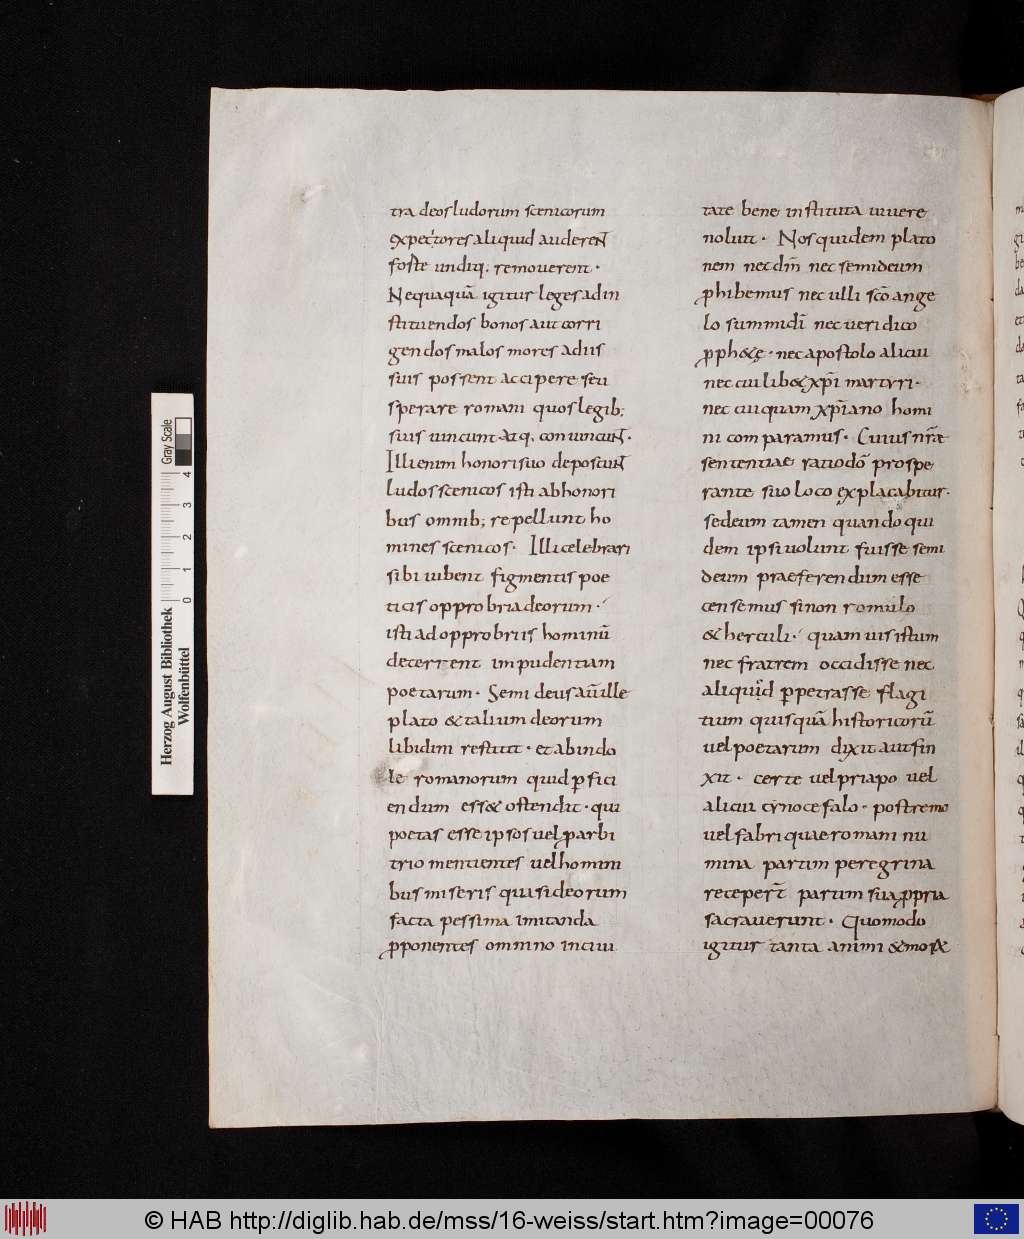 tra deos ludorum scenicorum
expectores aliquid auderent
foste undiq; remouerent·
Nequaquā igitur leges ad in
stituendos bonos aut corri
gendos malos mores a diis
suis possent accipere seu
sperare romani quos legib;
suis uincunt atq; conuincunt·
Illi enim honori suo deposcunt
ludos scenicos isti ab honori
bus omnib; repellunt ho
mines scenicos· Illi celebrari
sibi iubent figmentis poe
ticis opprobria deorum·
isti ad opprobriis hominū
deterrent impudentiam
poetarum· Semideus aūt ille
plato & talium deorum
libidini restitit· et ab indo
le romanorum quid ꝑfici
endum ess& ostendit· qui
poetas esse ipsos uel ꝓ arbi
trio mentientes uel homini
bus miseris quasi deorum
facta pessima imitanda
ꝓponentes omnino in ciui
tate bene instituta uiuere
noluit· Nos quidem plato
nem nec dm̄ nec semideum
ꝑhibemus nec ulli sc̄o ange
lo summi dī nec ueridico
ꝓph&ę· nec apostolo alicui
nec cuilib& xp̄i martyri·
nec cuiquam xp̄iano homi
ni comparamus· Cuius nr̄ae
sententiae ratio dō prospe
rante suo loco explacabitur·
sed eum tamen quando qui
dem ipsi uolunt fuisse semi
deum praeferendum esse
censemus si non romulo
& herculi· quamuis istum
nec fratrem occidisse nec
aliquid ꝑpetrasse flagi
tium quisquā historicorū
uel poetarum dixit aut fin
xit· certe uel priapo uel
alicui cynocefalo· postremo
uel fabri quae romani nu
mina partim peregrina
recepert̄ partim sua ꝓpria
sacrauerunt· Quomodo
igitur tanta animi & mor&
Herzog August Bibliothek
Wolfenbüttel
0 1 2 3 4
Gray Scale
© HAB http://diglib.hab.de/mss/16-weiss/start.htm?image=00076